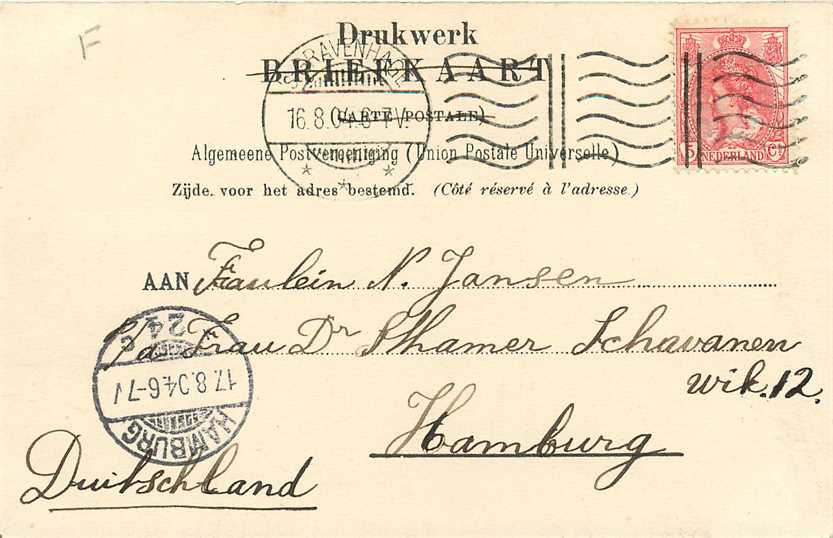 F
Drukwerk
BRIEFKAART
(CARTE POSTALE)
'S GRAVENHAGE
16.8.04.6-7V.
Algemeene Postvereeniging (Union Postale Universelle)
Zijde voor het adres bestemd. (Côté réservé à l'adresse)
5 NEDERLAND Ct
AAN Fraulein N. Jansen
p/a Frau Dr Thamer Schavanen
wik. 12.
Hamburg
Duitschland
HAMBURG
17.8.04.6-7V
24